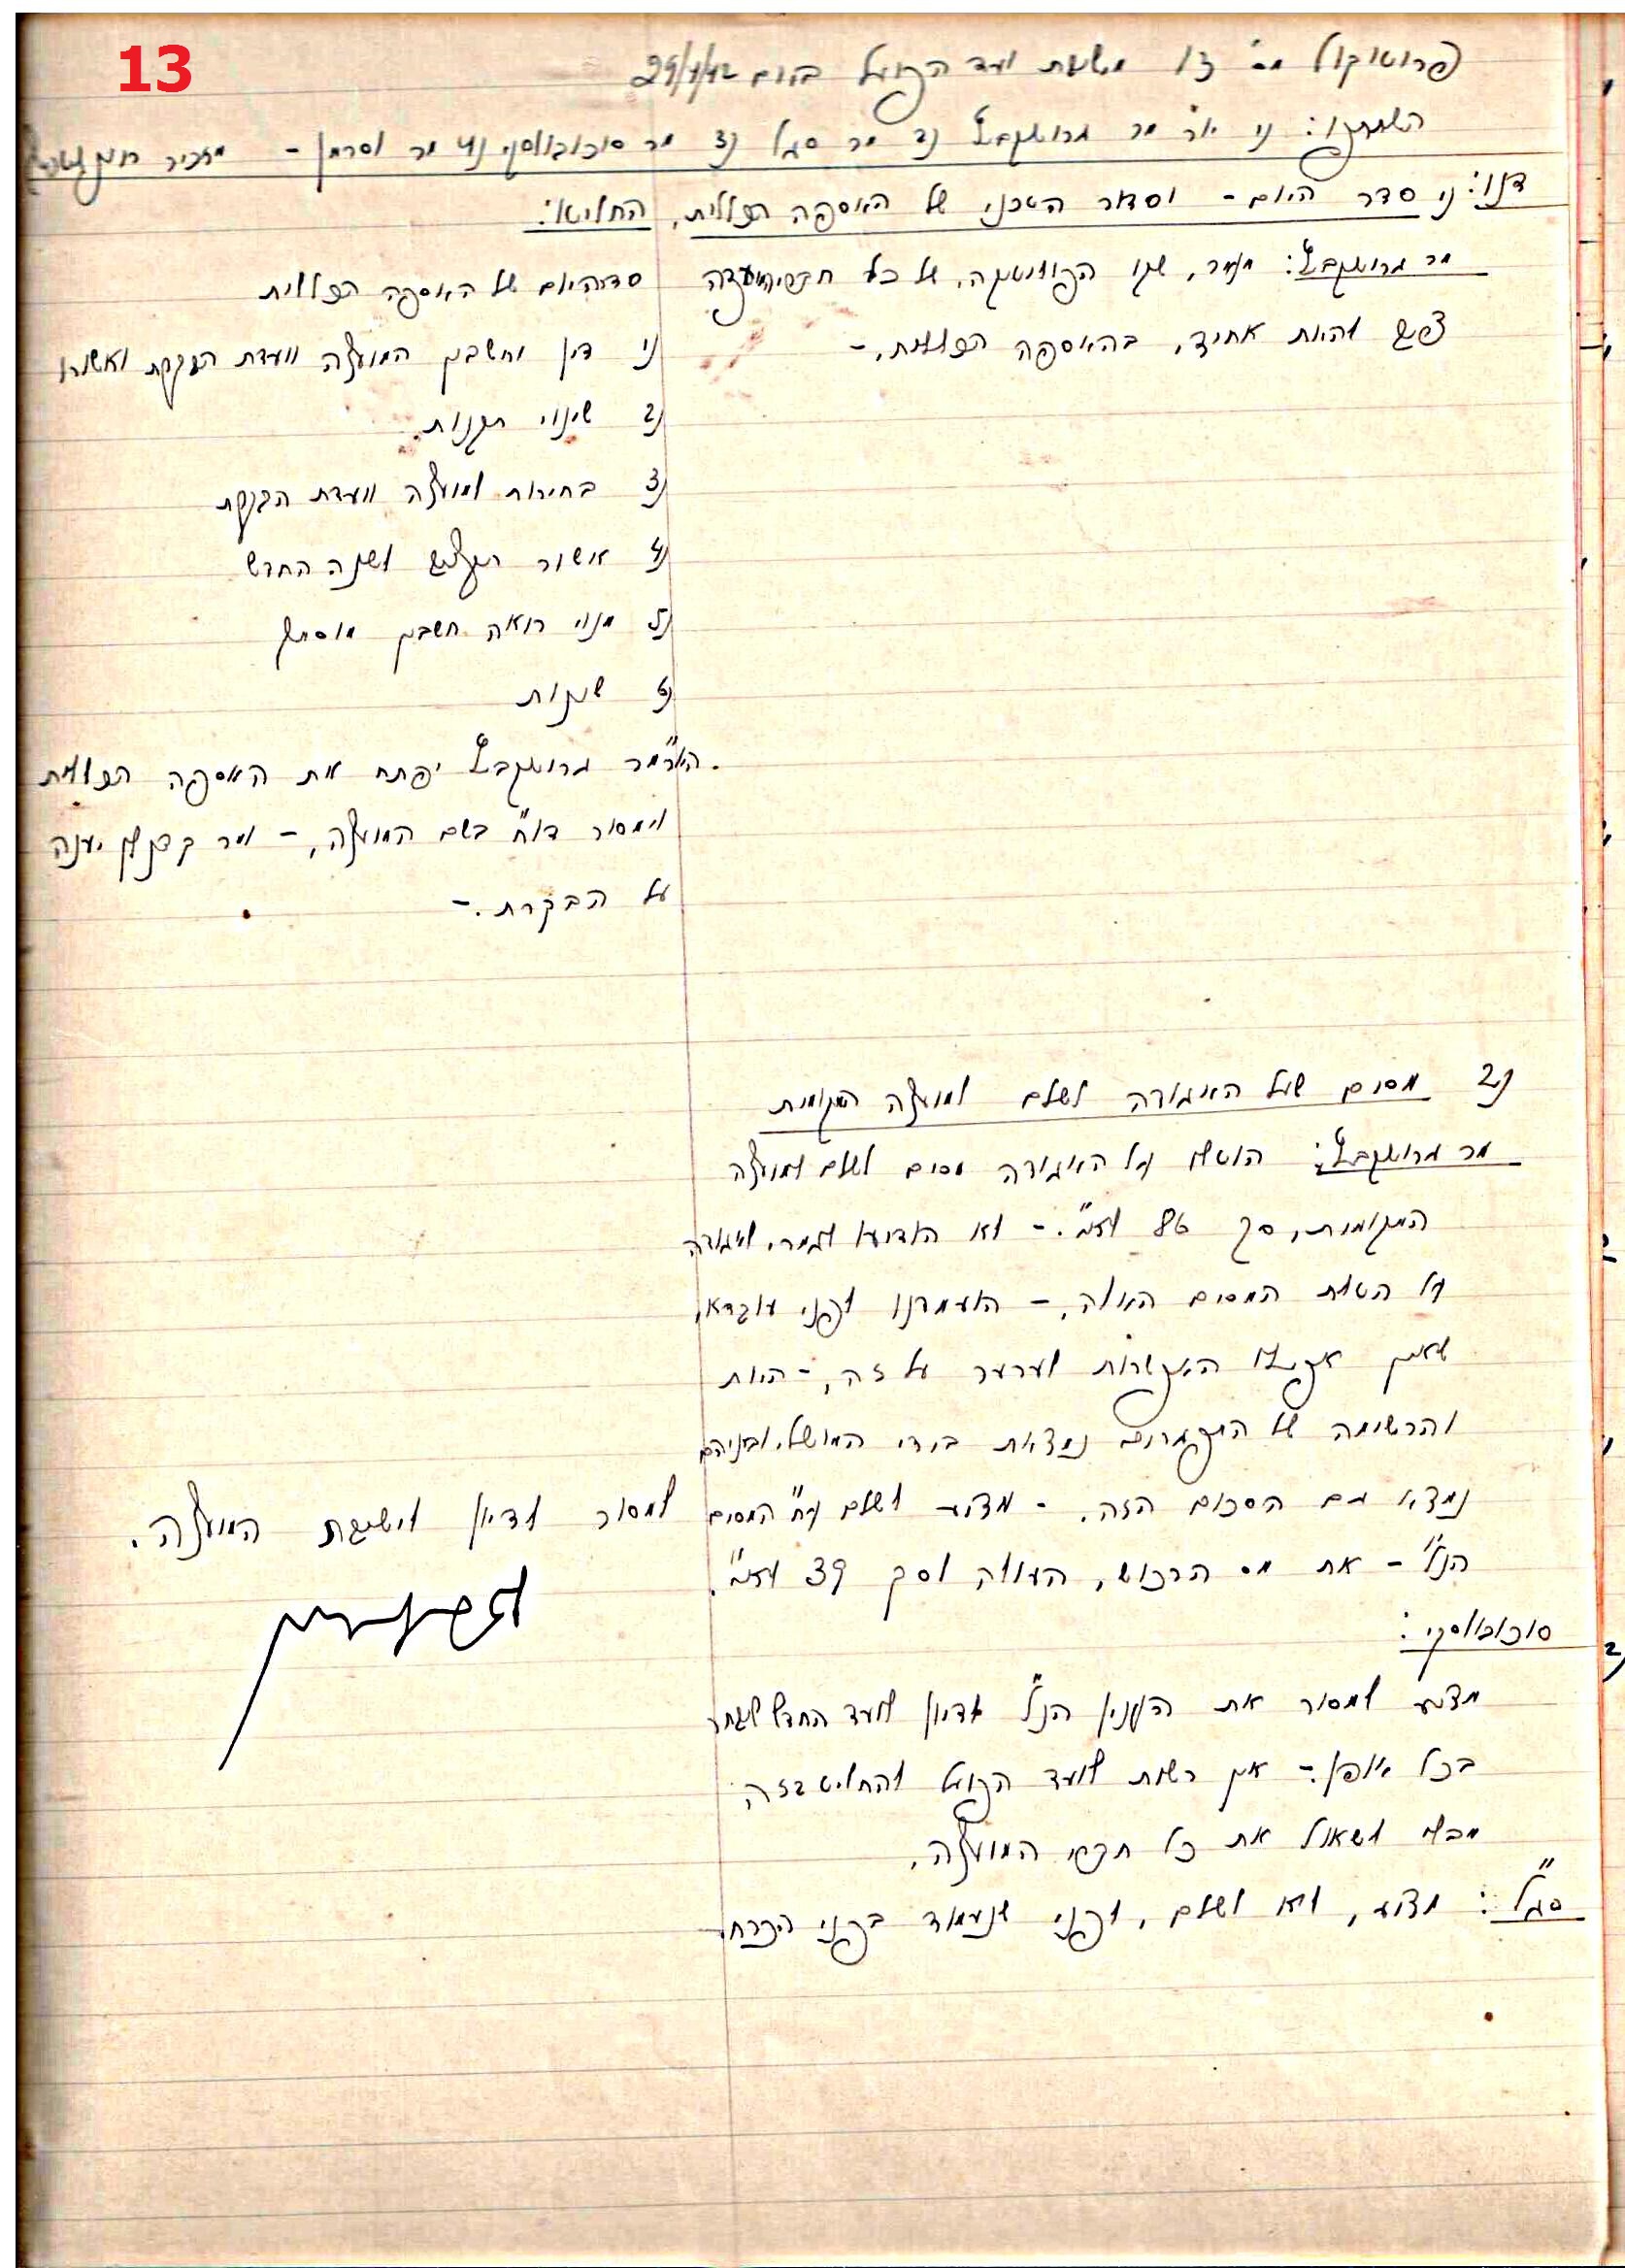 13
פרוטוקול מס 13 משיבת ועד הפועל ביום 29/1/42
השתתפו: 1) יו"ר מר גרושקביץ 2) מר סגל 3) מר סוכובולסקי 4) מר וסרמן - מזכיר
דנו: 1) סדר היום - וסדור הטכני של האספה הכללית.
מר גרושקביץ: אומר, שקו הפוליטיקה, של כל חברי המועצה
צריך להיות אחיד, בהאספה הכללית. -
החליטו:
סדר היום של האספה הכללית
1) דין וחשבון המועצה וועדת הבקרת ואשורו
2) שינוי תקנות.
3) בחירות למועצה וועדת הבקרת
4) אשור תקציב לשנה החדש
5) מנוי רואה חשבון מוסמך
6) שונות
היו"ר מר גרושקביץ יפתח את האספה הכללית
וימסור דו"ח בשם המועצה, - ומר קפלן יענה
על הבקרת. -
2) מסים שעל האיגודה לשלם למועצה המקומית
מר גרושקביץ: הוטלו על האיגודה מסים לשלם למועצה
המקומית, סך 86 לא"י. - לא הודיעו לגמרי לאיגודה
על הטלת המסים האלה, - הועמדנו לפני עובדא,
שאין אפילו האפשרות לערער על זה, - היות
והרשימה של המפגרים נמצאת בידי המושל, וביניהם
נמצא גם הסכום הזה. - מציע לשלם ע"ח המסים
הנ"ל - את מס הרכוש, העולה לסך 39 לא"י.
סוכובולסקי:
מציע למסור את הענין הנ"ל לדיון לועד החדש שיבחר
בכל אופן - אין רשות לועד הפועל להחליט בזה
מבלי לשאול את כל חברי המועצה.
סגל: מציע, לא לשלם, לפני שנעמוד בפני הכרח.
למסור לדיון לישיבת המועצה.